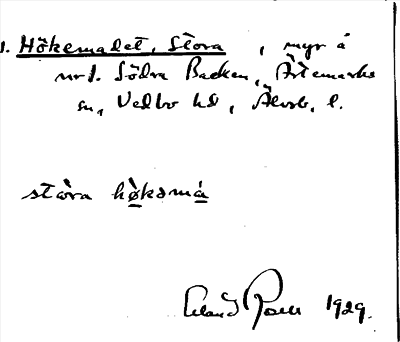 1. Hökemadet, Stora, myr å
nr 1. Södra Backen, Ärtemarks
sn, Vedbo hd, Älvsb. l.
stòra hø̀kəmá
Erland Rosell 1929.